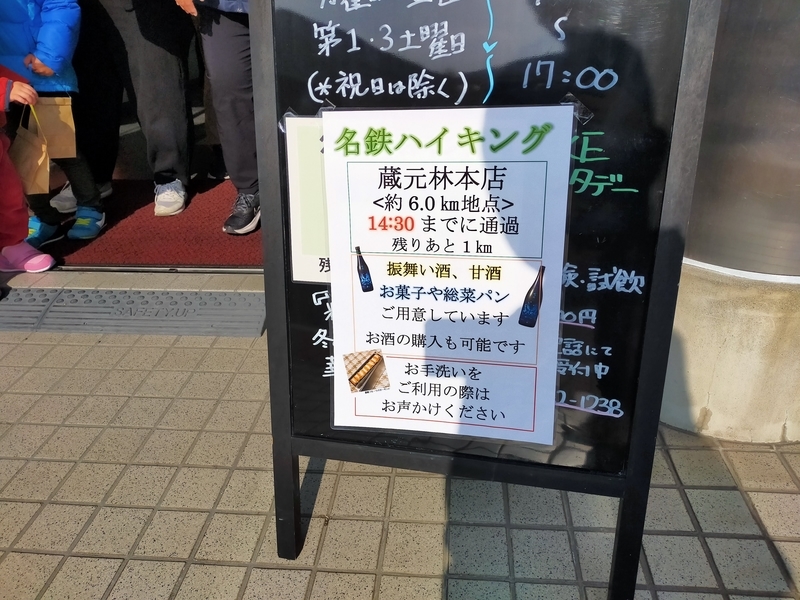 第1・3土曜日
(*祝日は除く)
17:00
名鉄ハイキング
蔵元林本店
<約 6.0 km地点>
14:30 までに通過
残りあと 1 km
振舞い酒、甘酒
お菓子や総菜パン
ご用意しています
お酒の購入も可能です
お手洗いを
ご利用の際は
お声かけください
タデー
・試飲
円
にて
受付中
-1238
SAFETY UP